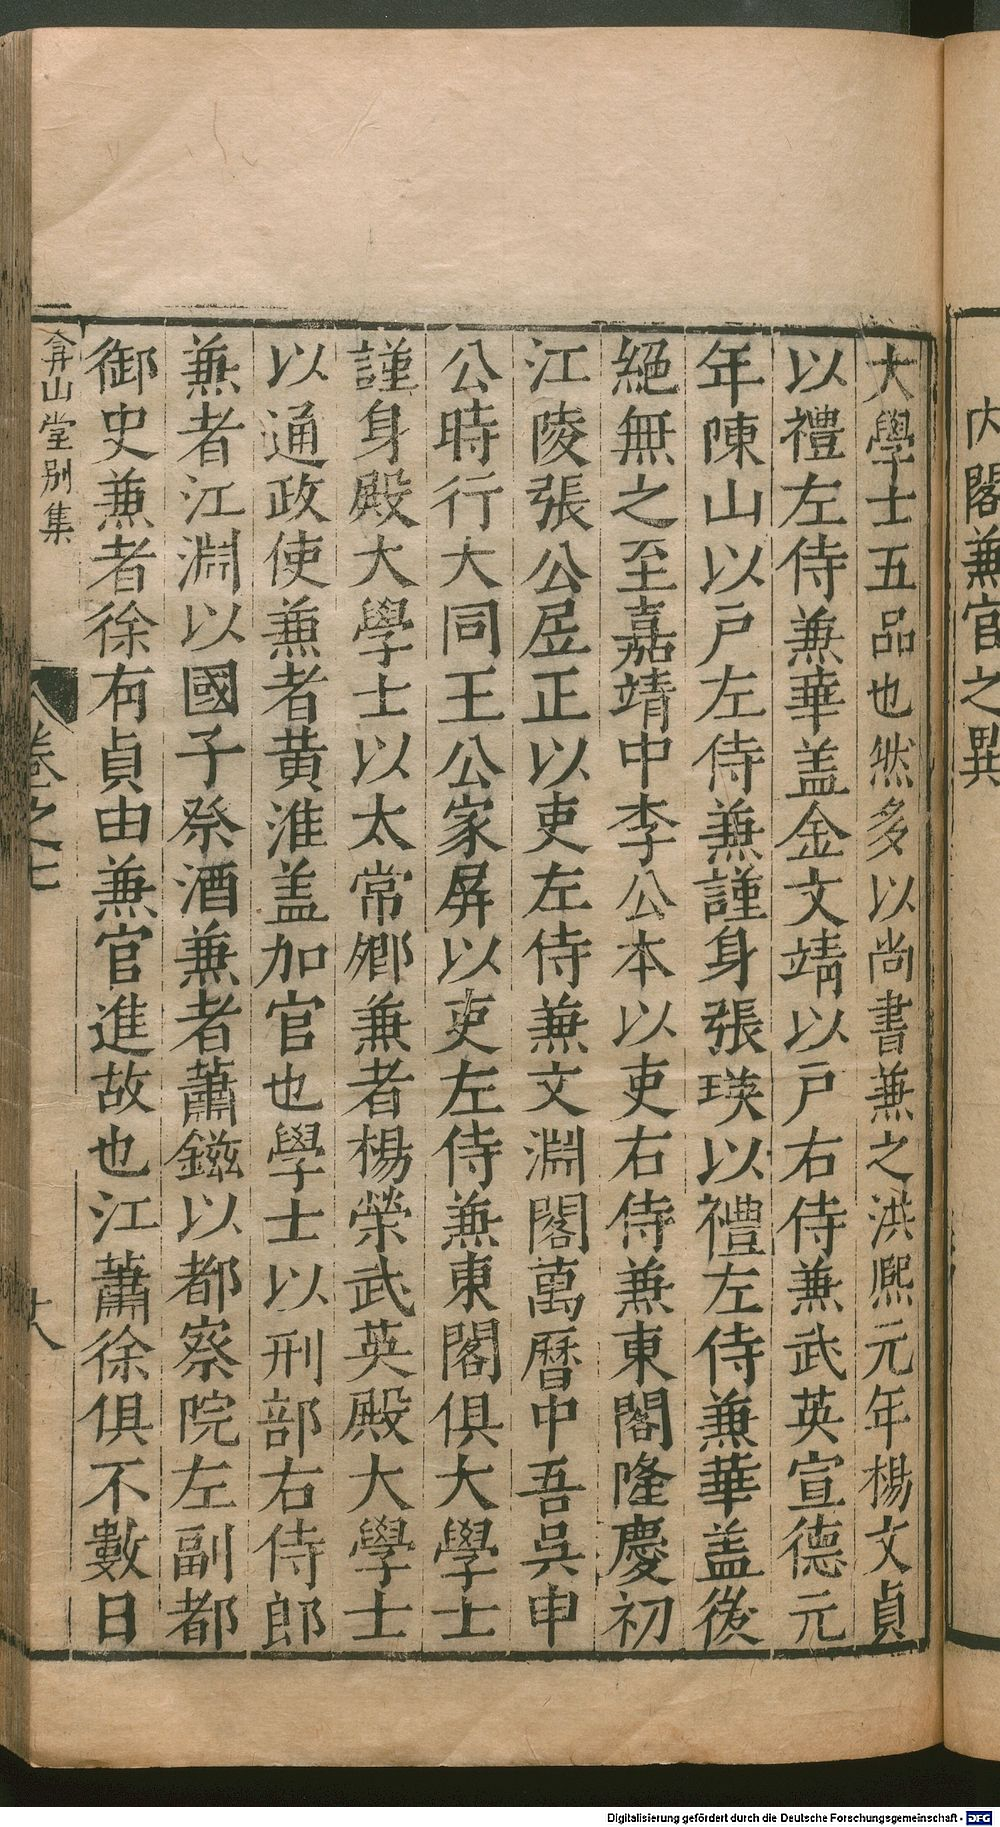 內閣兼官之異
大學士五品也然多以尚書兼之洪熈元年楊文貞
以禮左侍兼華盖金文靖以戸右侍兼武英宣德元
年陳山以戸左侍兼謹身張瑛以禮左侍兼華盖後
絕無之至嘉靖中李公本以吏右侍兼東閣隆慶初
江陵張公居正以吏左侍兼文淵閣萬曆中吾吳申
公時行大同王公家屏以吏左侍兼東閣俱大學士
謹身殿大學士以太常卿兼者楊榮武英殿大學士
以通政使兼者黃淮盖加官也學士以刑部右侍郎
兼者江淵以國子祭酒兼者蕭鎡以都察院左副都
御史兼者徐有貞由兼官進故也江蕭徐俱不數日
弇山堂别集
卷之七
十八
Digitalisierung gefördert durch die Deutsche Forschungsgemeinschaft - DFG